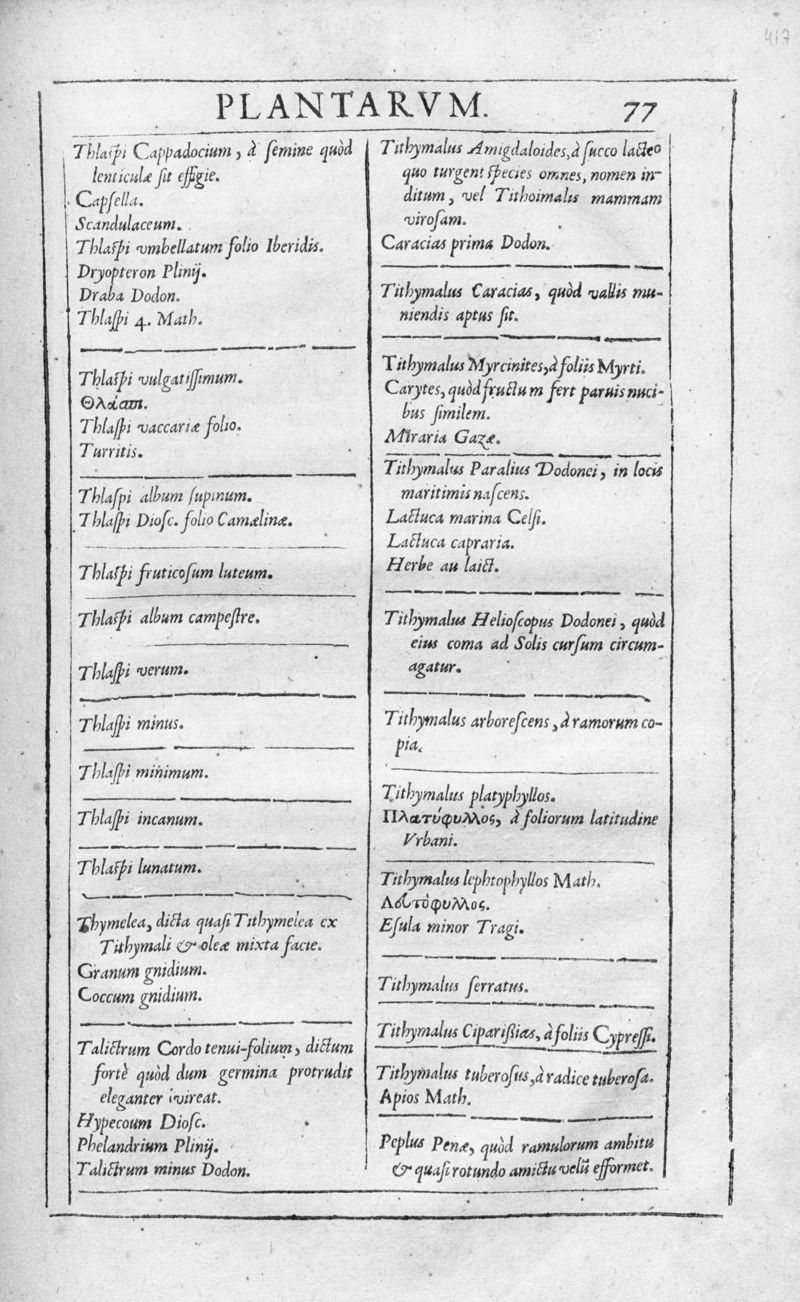 417
PLANTARVM. 77
Thlaſpi Cappadocium, à ſemine quòd
lenticulæ ſit effigie.
Capſella.
Scandulaceum.
Thlaſpi vmbellatum folio Iberidis.
Dryopteron Plinij.
Draba Dodon.
Thlaſpi 4. Math.
Thlaſpi vulgatiſſimum.
Θλάσπι.
Thlaſpi vaccariæ folio.
Turritis.
Thlaſpi album ſupinum.
Thlaſpi Dioſc. folio Camælinæ.
Thlaſpi fruticoſum luteum.
Thlaſpi album campeſtre.
Thlaſpi verum.
Thlaſpi minus.
Thlaſpi minimum.
Thlaſpi incanum.
Thlaſpi lunatum.
Thymelea, dicta quaſi Tithymelea ex
Tithymali & oleæ mixta facie.
Granum gnidium.
Coccum gnidium.
Talictrum Cordo tenui-folium, dictum
fortè quòd dum germina protrudit
eleganter vireat.
Hypecoum Dioſc.
Phelandrium Plinij.
Talictrum minus Dodon.
Tithymalus Amigdaloides, à ſucco lacteo
quo turgent ſpecies omnes, nomen in-
ditum, vel Tithoimalis mammam
viroſam.
Caracias prima Dodon.
Tithymalus Caracias, quòd vallis mu-
niendis aptus ſit.
Tithymalus Myrcinites, à foliis Myrti.
Carytes, quòd fructum fert paruis nuci-
bus ſimilem.
Miraria Gazæ.
Tithymalus Paralius Dodonei, in locis
maritimis naſcens.
Lactuca marina Celſi.
Lactuca capraria.
Herbe au laict.
Tithymalus Helioſcopus Dodonei, quòd
eius coma ad Solis curſum circum-
agatur.
Tithymalus arboreſcens, à ramorum co-
pia.
Tithymalus platyphyllos.
Πλατύφυλλος, à foliorum latitudine
Vrbani.
Tithymalus lephtophyllos Math.
Λεπτόφυλλος.
Eſula minor Tragi.
Tithymalus ſerratus.
Tithymalus Cipariſſias, à foliis Cypreſſi.
Tithymalus tuberoſus, à radice tuberoſa.
Apios Math.
Peplus Penæ, quòd ramulorum ambitu
& quaſi rotundo amictu velũ efformet.